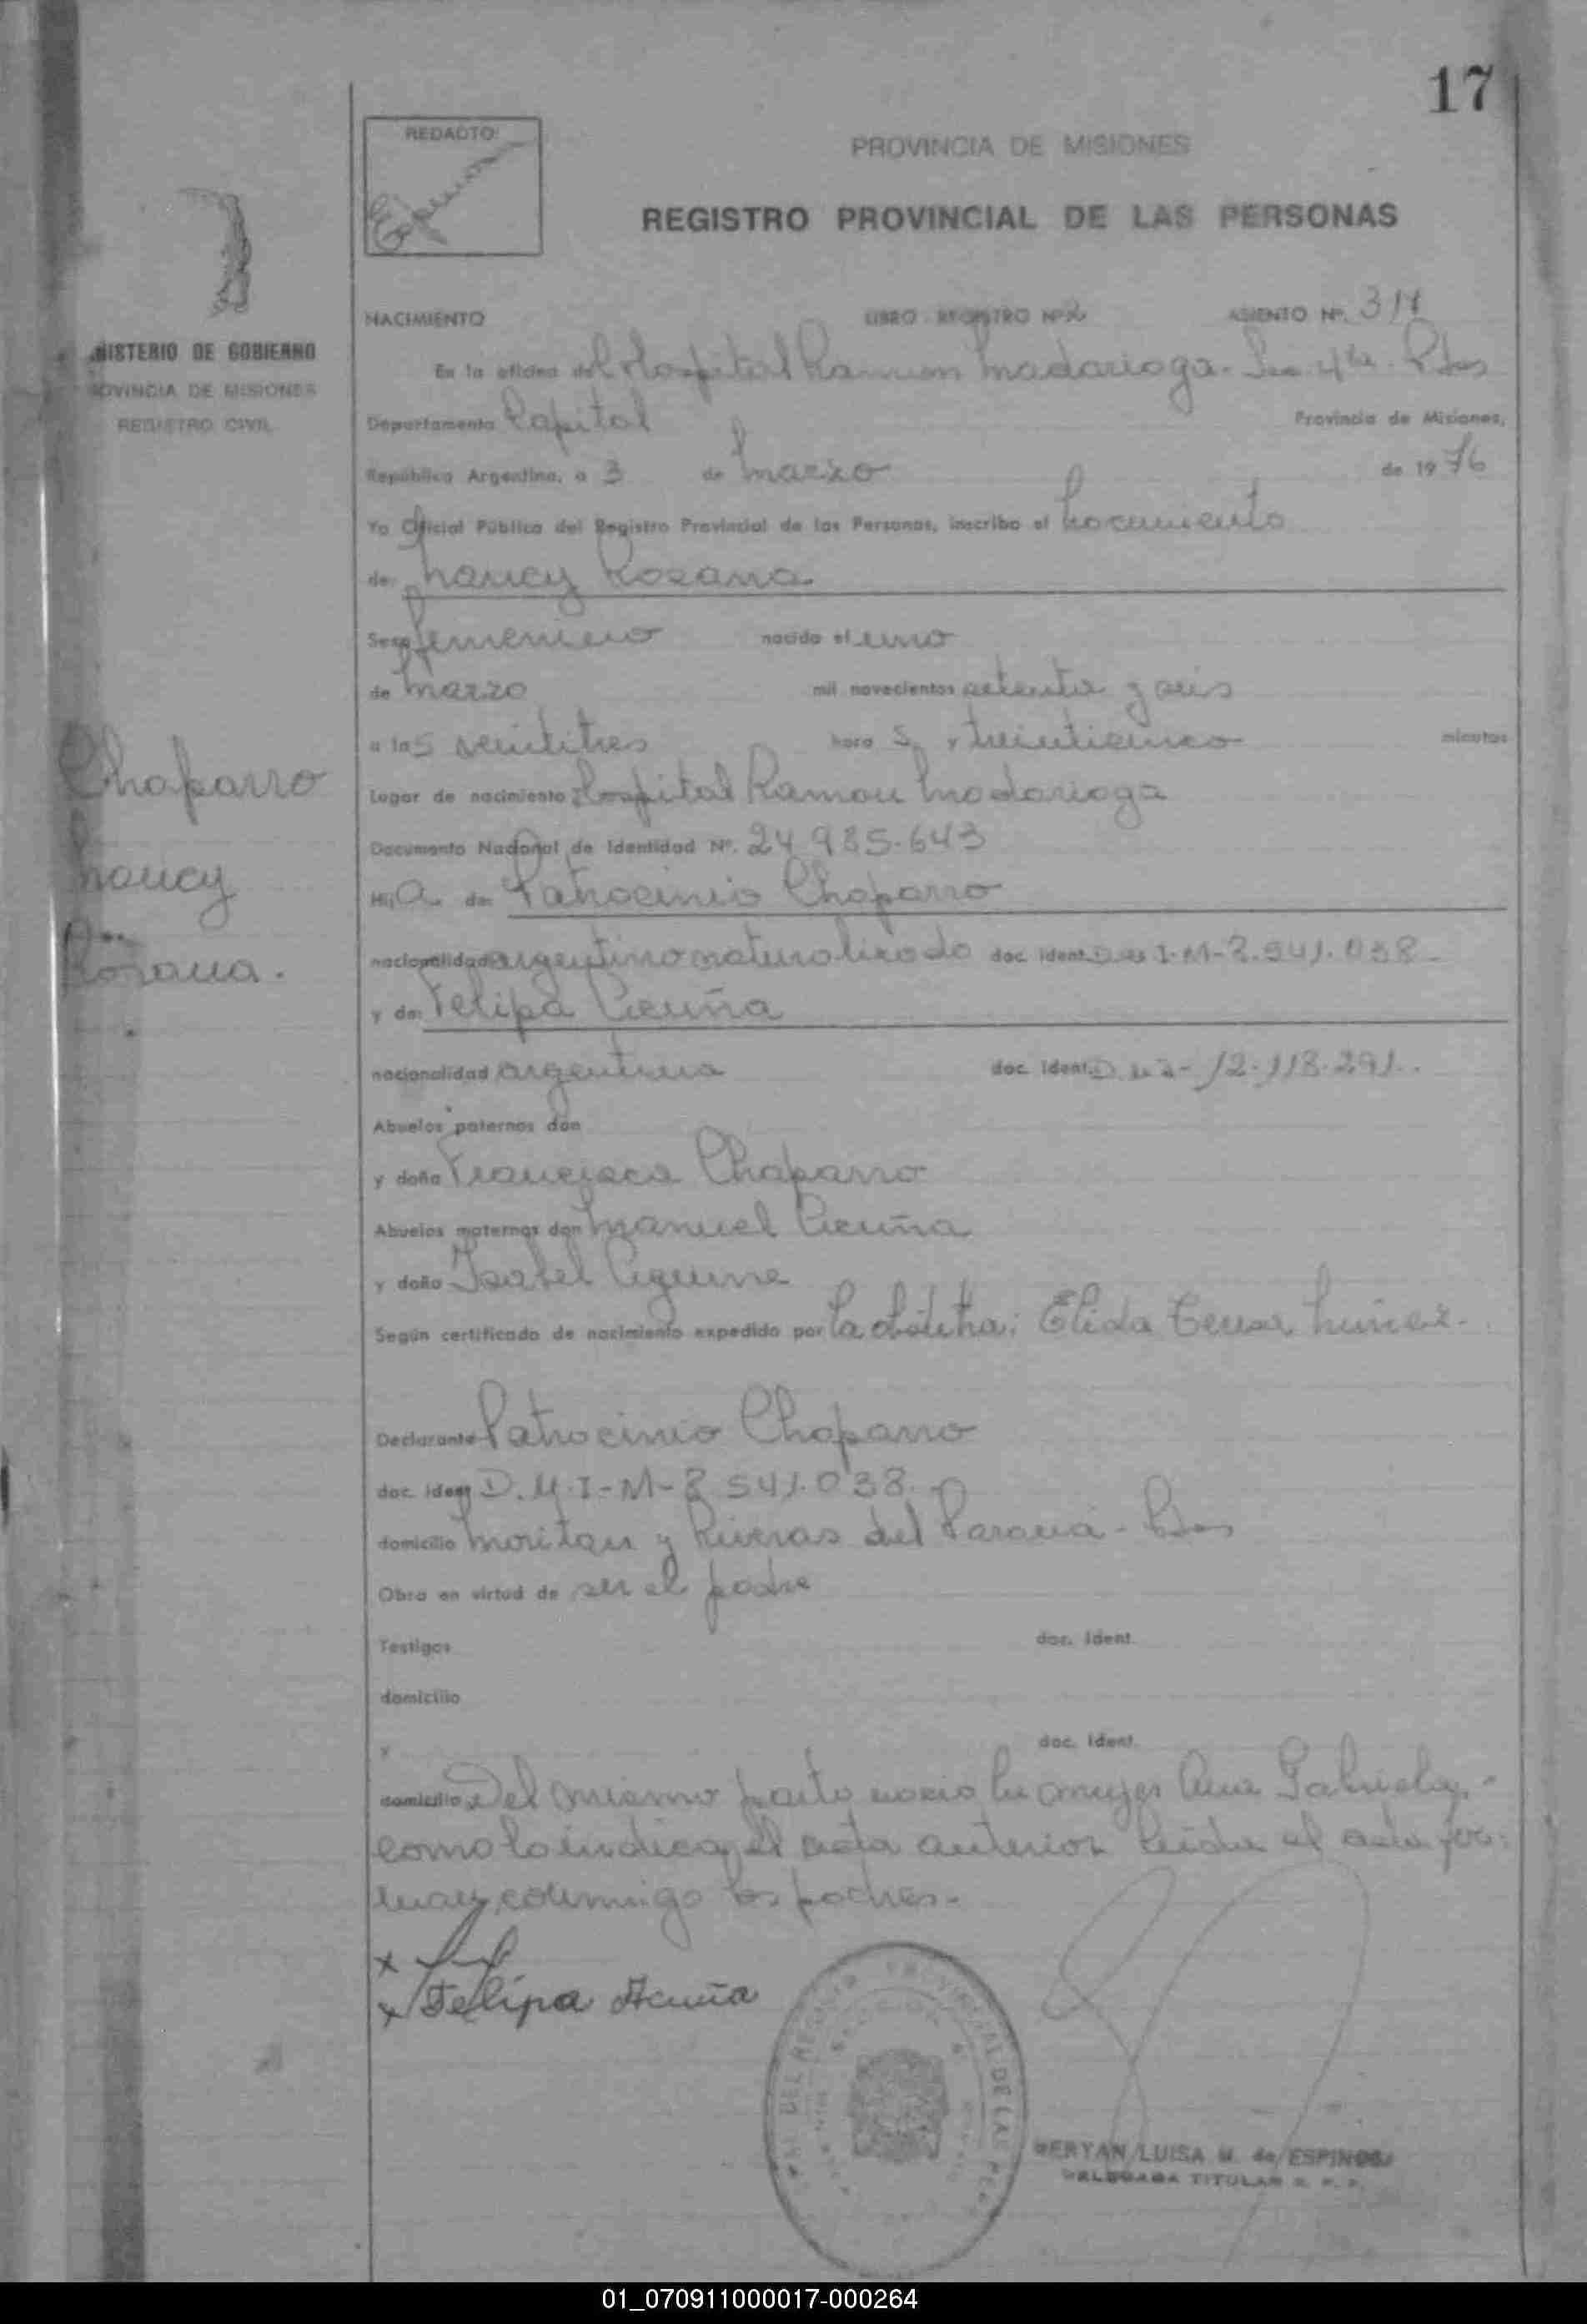 17
REDACTO:
PROVINCIA DE MISIONES
REGISTRO PROVINCIAL DE LAS PERSONAS
NACIMIENTO LIBRO REGISTRO Nº ASIENTO Nº. 314
NISTERIO DE GOBIERNO
OVINCIA DE MISIONES
REGISTRO CIVIL
En la oficina del Hospital Ramon Madariaga - Sec 4ta. Pdas
Departamento Capital Provincia de Misiones,
República Argentina, a 3 de Marzo de 1976
Yo Oficial Público del Registro Provincial de las Personas, inscribo el Nacimiento
de: Nancy Rosana
Sexo femenino nacido el uno
de Marzo mil novecientos setenta y seis
a las veintitres hora s y treinticinco minutos
Chaparro
Nancy
Rosana.
Lugar de nacimiento Hospital Ramon Madariaga
Documento Nacional de Identidad Nº. 24 985.643
Hija de: Patrocinio Chaparro
nacionalidad argentino naturalizado doc. Ident. I-M-8.541.038-
y de: Felipa Acuña
nacionalidad argentina doc. Ident. 12.118.291.
Abuelos paternos don
y doña Francisca Chaparro
Abuelos maternos don Manuel Acuña
y doña Isabel Aguirre
Según certificado de nacimiento expedido por la obstetra: Elida Nuñez-
Declarante Patrocinio Chaparro
doc. ident D.M.I-M-8 541.038.
domicilio y Riveras del Parana - Pdas
Obra en virtud de ser el padre
Testigos doc. Ident.
domicilio
y doc. Ident.
domicilio Del mismo parto nacio la mujer Ana Gabriela,
como lo indica el acta anterior. Leida el acta fir-
man conmigo los padres.-
x
x Felipa Acuña
LUISA M. de ESPINOSA
DELEGADA TITULAR R. P. P.
01_070911000017-000264